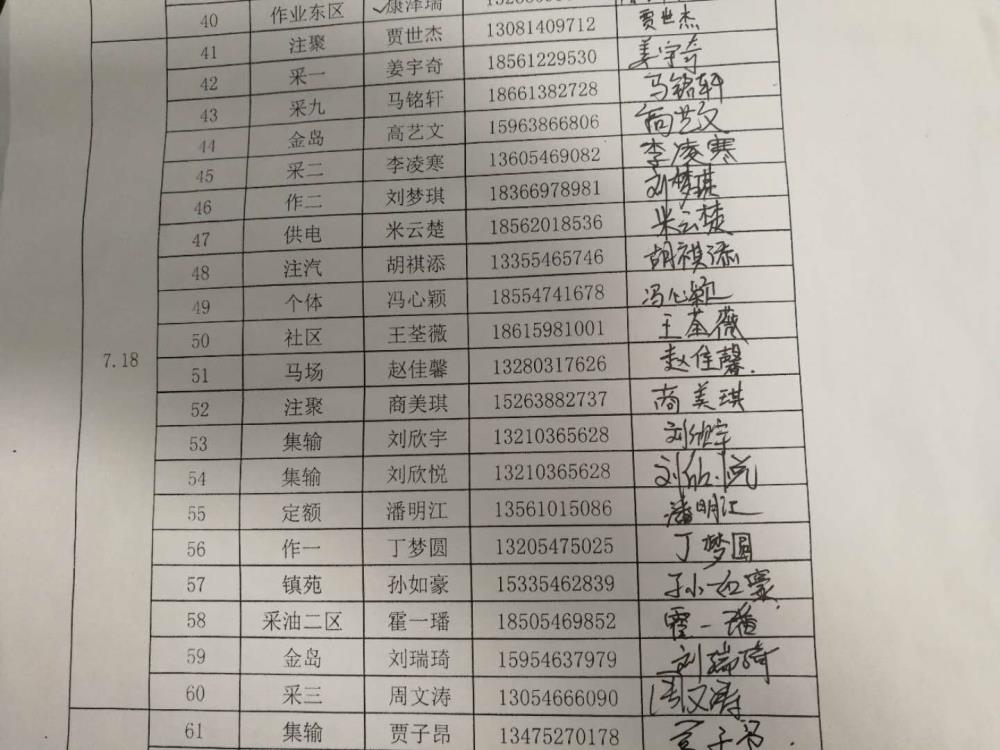 40 作业东区 ✓康泽瑞
41 注聚 贾世杰 13081409712 贾世杰
42 采一 姜宇奇 18561229530 姜宇奇
43 采九 马铭轩 18661382728 马铭轩
44 金岛 高艺文 15963866806 高艺文
45 采二 李凌寒 13605469082 李凌寒
46 作二 刘梦琪 18366978981 刘梦琪
47 供电 米云楚 18562018536 米云楚
48 注汽 胡祺添 13355465746 胡祺添
49 个体 冯心颖 18554741678 冯心颖
50 社区 王荃薇 18615981001 王荃薇
7.18 51 马场 赵佳馨 13280317626 赵佳馨.
52 注聚 商美琪 15263882737 商美琪
53 集输 刘欣宇 13210365628 刘欣宇
54 集输 刘欣悦 13210365628 刘欣悦
55 定额 潘明江 13561015086 潘明江
56 作一 丁梦圆 13205475025 丁梦圆
57 镇苑 孙如豪 15335462839 孙如豪
58 采油二区 霍一璠 18505469852 霍一璠
59 金岛 刘瑞琦 15954637979 刘瑞琦
60 采三 周文涛 13054666090 周文涛
61 集输 贾子昂 13475270178